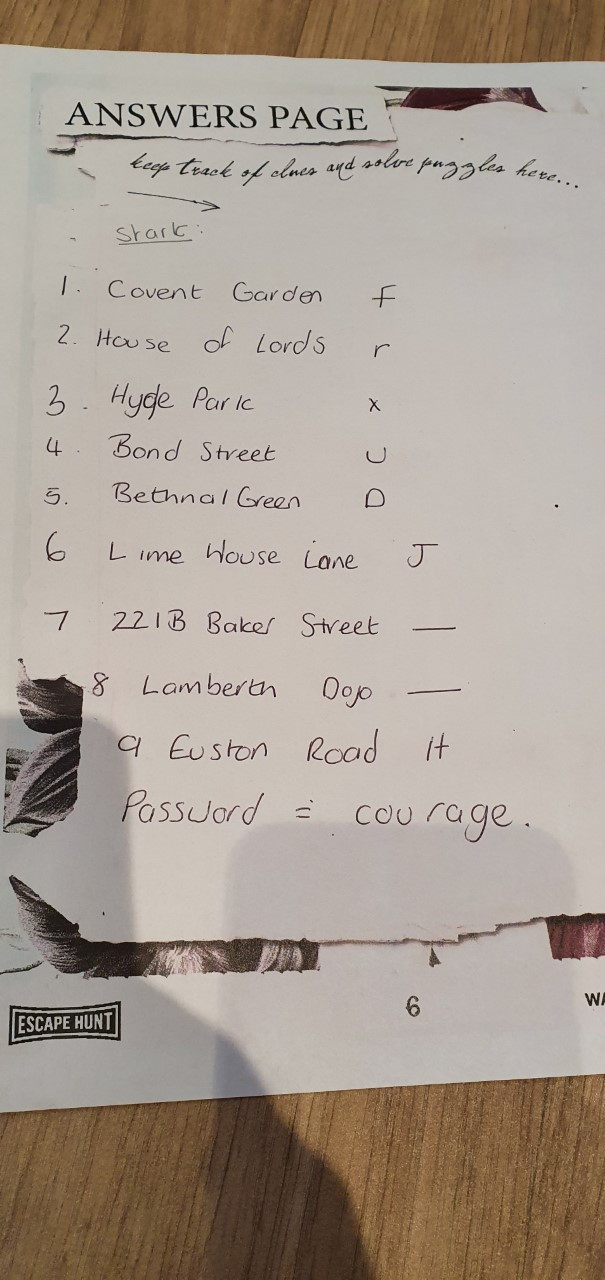 ANSWERS PAGE
keep track of clues and solve puzzles here...
Stark:
1. Covent Garden F
2. House of Lords r
3. Hyde Park x
4. Bond Street U
5. Bethnal Green D
6 Lime House Lane J
7 221B Baker Street —
8 Lamberth Dojo —
9 Euston Road H
Password = courage.
ESCAPE HUNT
6